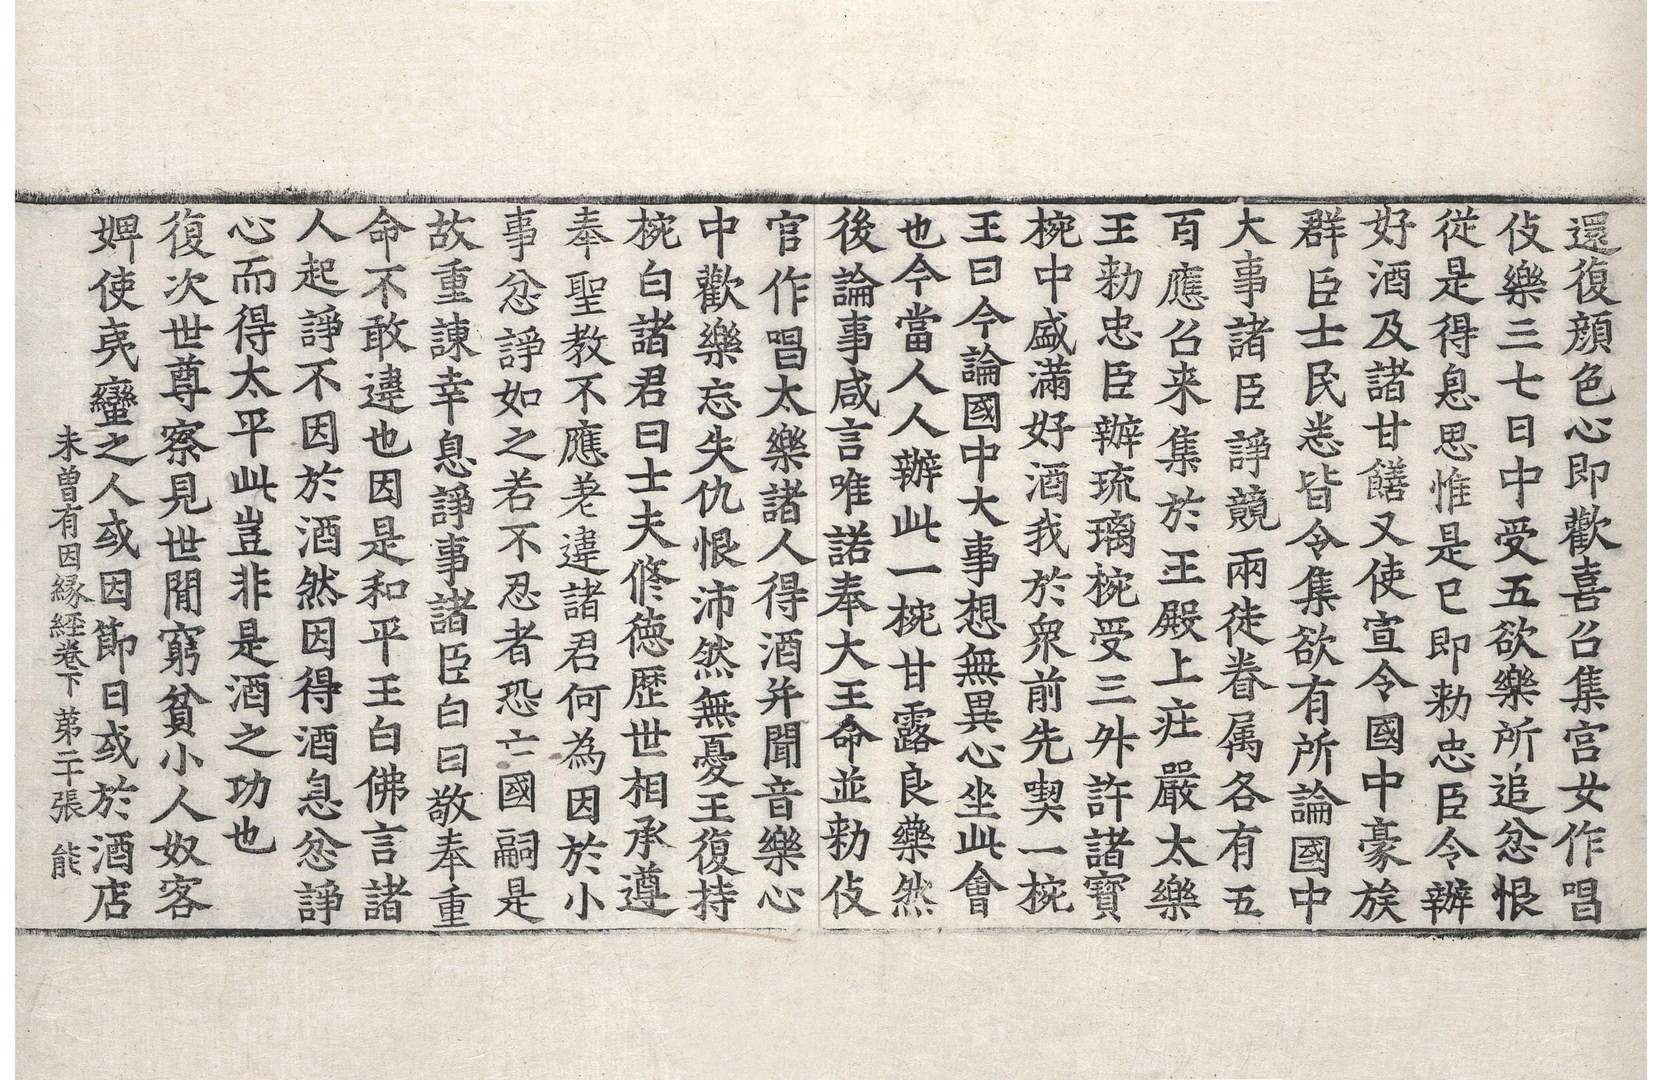 還復顔色心即歡喜召集宮女作唱
伎樂三七日中受五欲樂所追忿恨
從是得息思惟是已即勑忠臣令辦
好酒及諸甘饍又使宣令國中豪族
群臣士民悉皆令集欲有所論國中
大事諸臣諍競兩徒眷属各有五
百應召来集於王殿上莊嚴太樂
王勑忠臣辦琉璃椀受三升許諸寶
椀中盛滿好酒我於衆前先喫一椀
王曰今論國中大事想無異心坐此會
也今當人人辦此一椀甘露良藥然
後論事咸言唯諾奉大王命並勑伎
官作唱太樂諸人得酒并聞音樂心
中歡樂忘失仇恨沛然無憂王復持
椀白諸君曰士夫修德歷世相承遵
奉聖教不應差違諸君何為因於小
事忿諍如之若不忍者恐亡國嗣是
故重諫幸息諍事諸臣白曰敬奉重
命不敢違也因是和平王白佛言諸
人起諍不因於酒然因得酒息忿諍
心而得太平此豈非是酒之功也
復次世尊察見世間窮貧小人奴客
婢使夷蠻之人或因節日或於酒店
未曾有因緣經卷下 第二十張 能